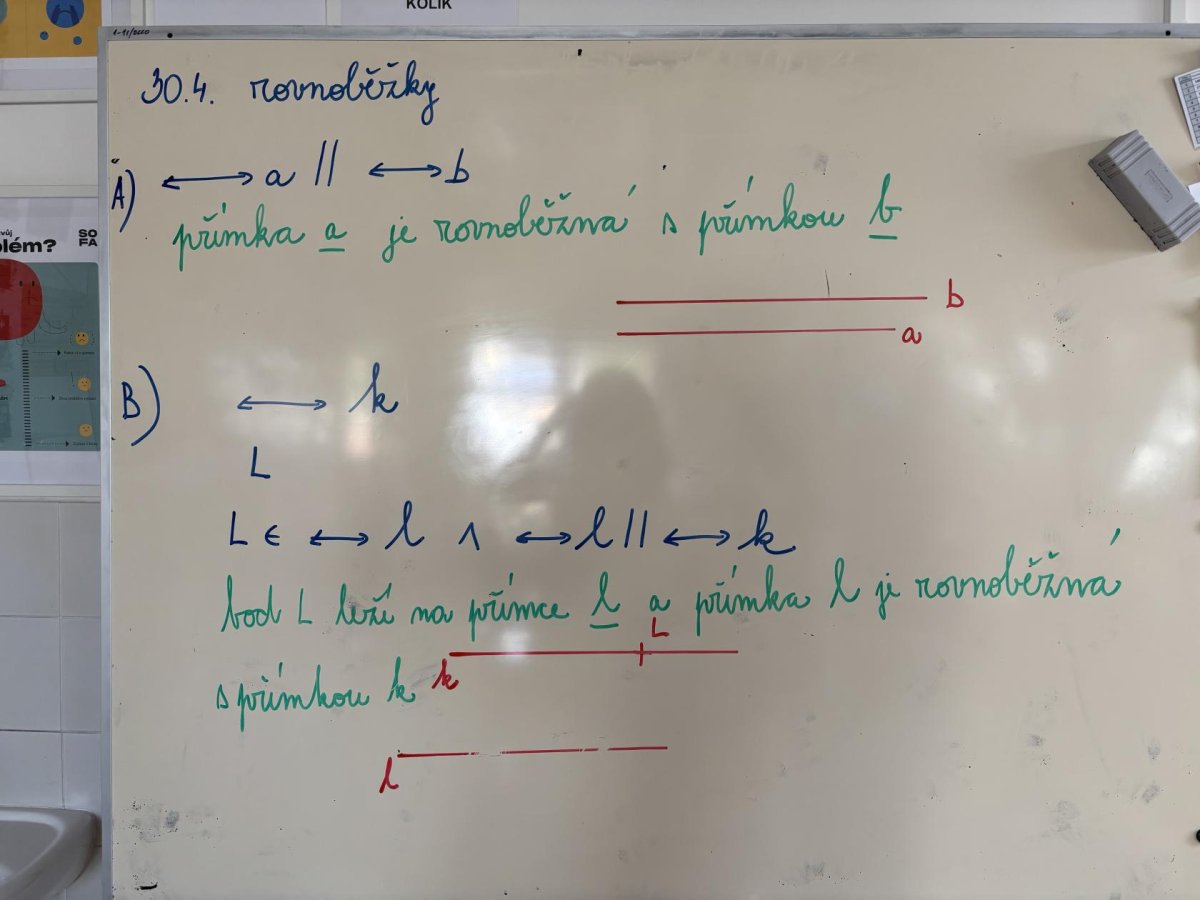 KOLIK
30.4. rovnoběžky
A) ↔ a || ↔ b
přímka a je rovnoběžná s přímkou b
b
a
B) ↔ k
L
L ∈ ↔ l ∧ ↔ l || ↔ k
bod L leží na přímce l a přímka l je rovnoběžná
L
s přímkou k
k
l
svůj
SO
FA